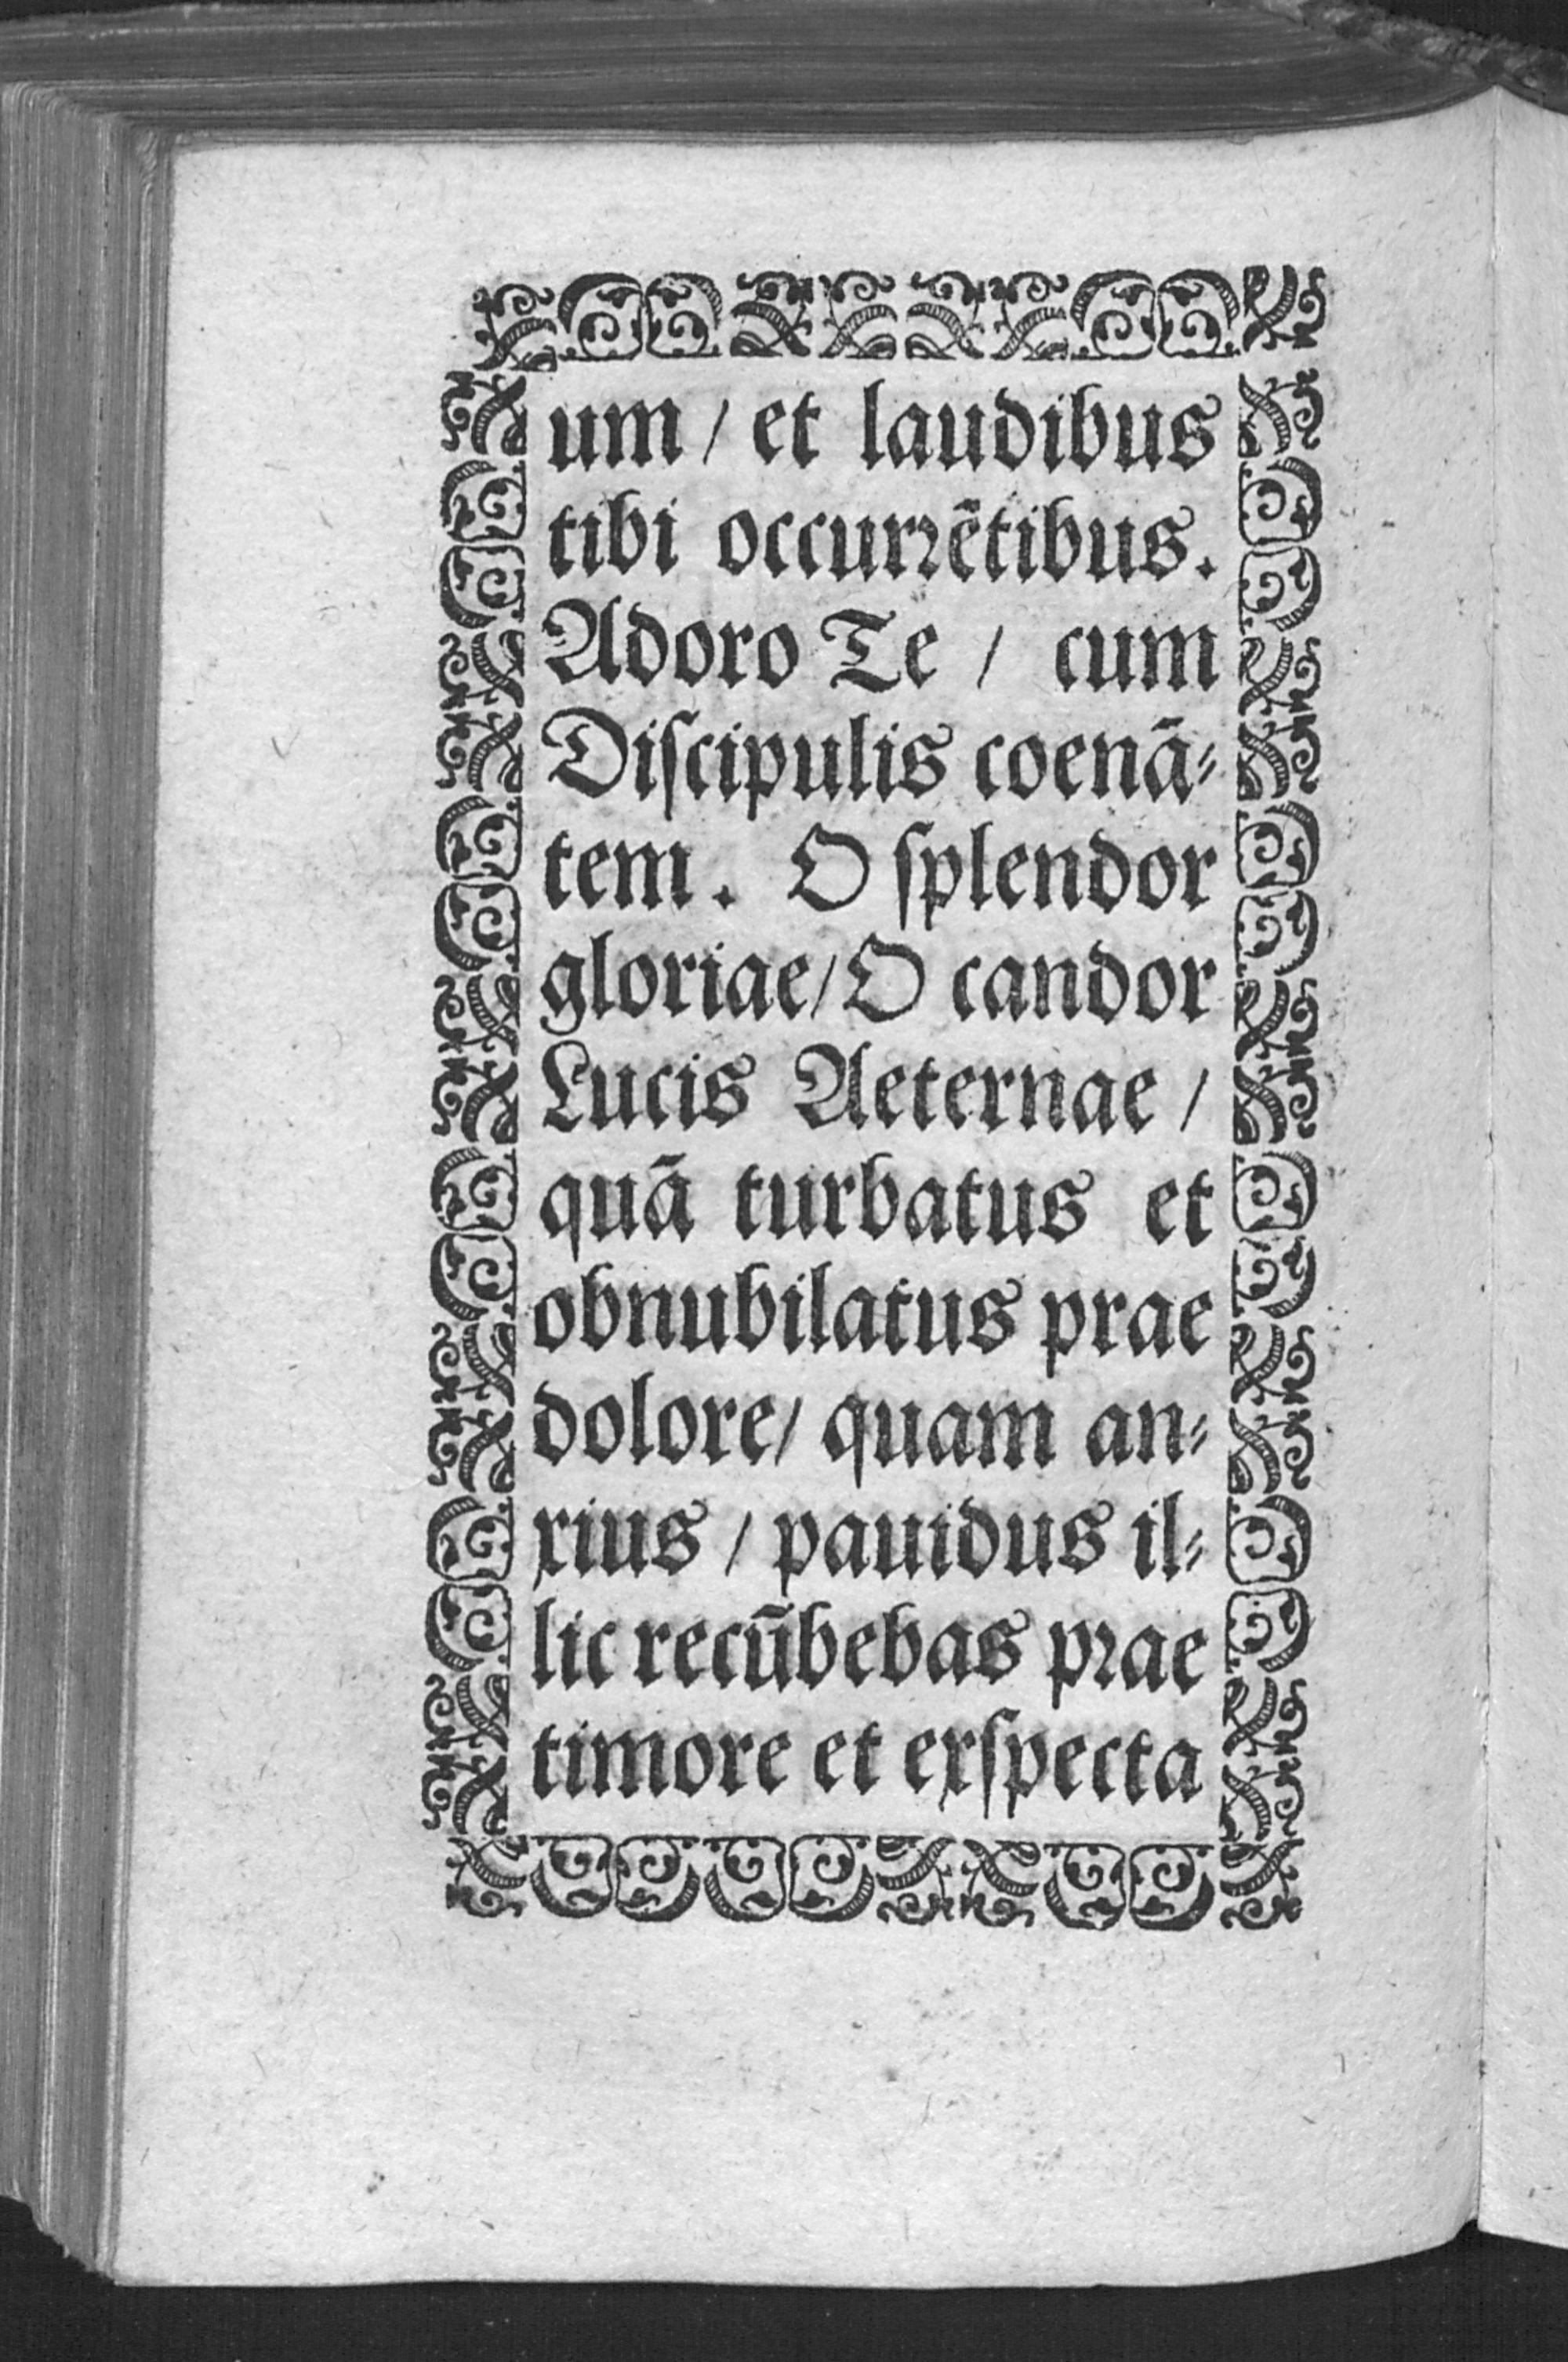 um / et laudibus
tibi occurrētibus.
Adoro Te / cum
Diſcipulis coenā⸗
tem. O ſplendor
gloriae/ O candor
Lucis Aeternae /
quā turbatus et
obnubilatus prae
dolore/ quam an⸗
xius / pauidus il⸗
lic recūbebas prae
timore et exſpecta